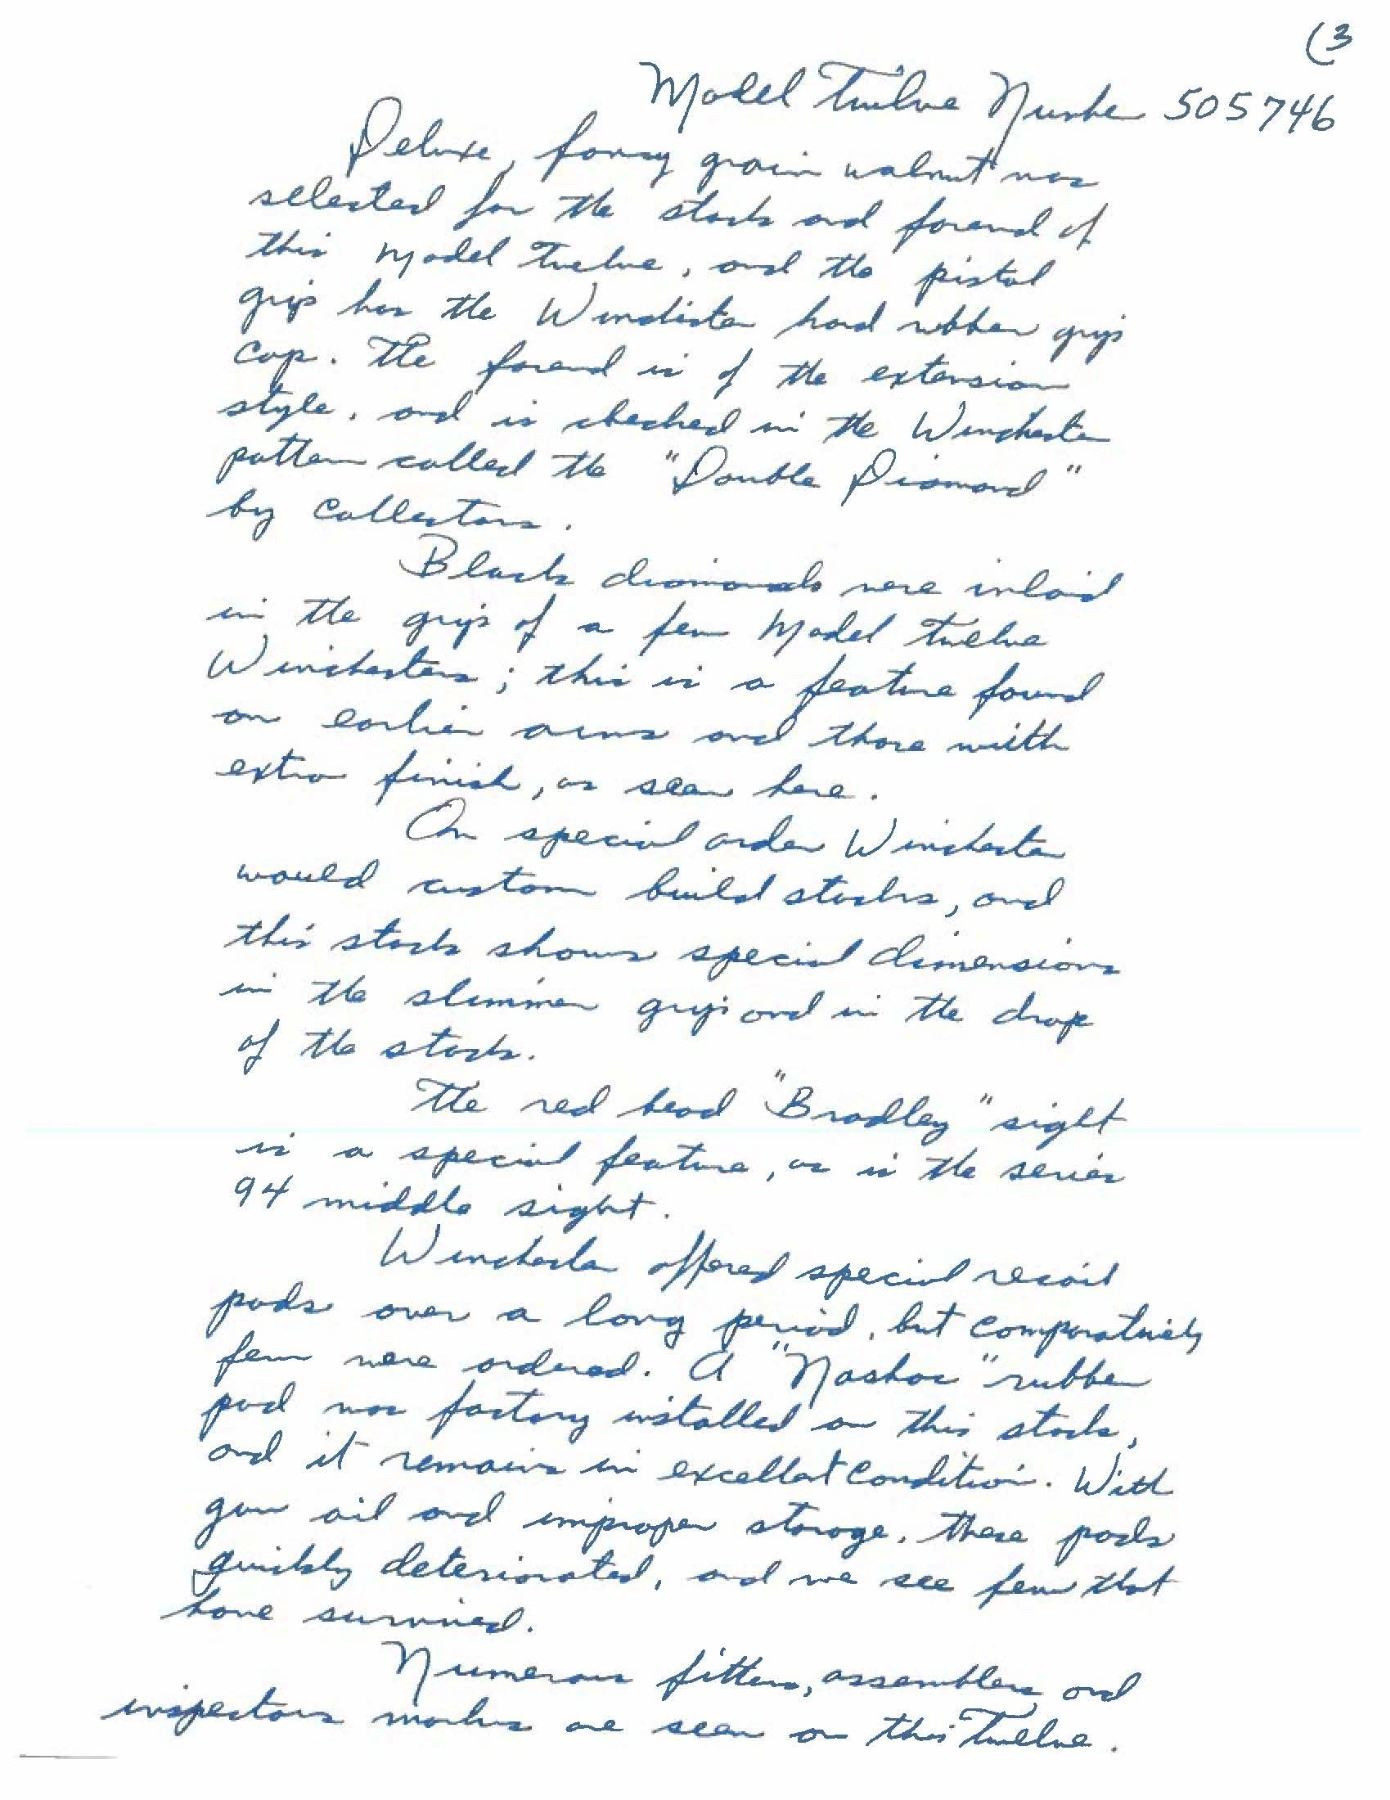 (3
Model Twelve Number 505746
Deluxe, fancy grain walnut was
selected for the stock and forend of
this Model Twelve, and the pistol
grip has the Winchester hard rubber grip
cap. The forend is of the extension
style, and is checked in the Winchester
pattern called the "Double Diamond"
by collectors.
Black diamonds were inlaid
in the grip of a few Model Twelve
Winchesters; this is a feature found
on earlier arms and those with
extra finish, as seen here.
On special order Winchester
would custom build stocks, and
this stock shows special dimensions
in the slimmer grip and in the drop
of the stock.
The red bead "Bradley" sight
is a special feature, as is the series
94 middle sight.
Winchester offered special recoil
pads over a long period, but comparatively
few were ordered. A "Noshoc" rubber
pad was factory installed on this stock,
and it remains in excellent condition. With
gun oil and improper storage, these pads
quickly deteriorated, and we see few that
have survived.
Numerous fitters, assemblers and
inspectors marks are seen on this Twelve.